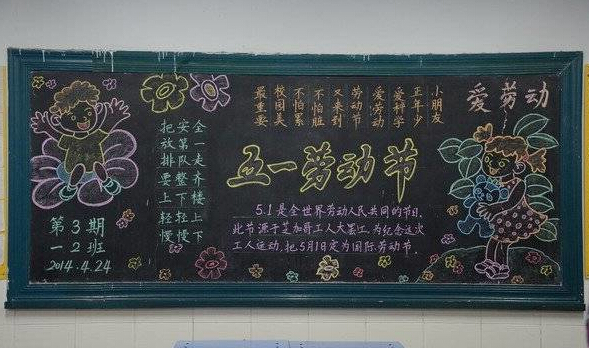 爱劳动
小朋友
正年少
爱科学
爱劳动
劳动节
又来到
不怕脏
不怕累
校园美
最重要
把安全
放第一
排队走
要整齐
上下楼
轻轻上
慢慢下
五一劳动节
5.1是全世界劳动人民共同的节日.
此节源于芝加哥工人大罢工.为纪念这次
工人运动,把5月1日定为国际劳动节.
第3期
一2班
2014.4.24